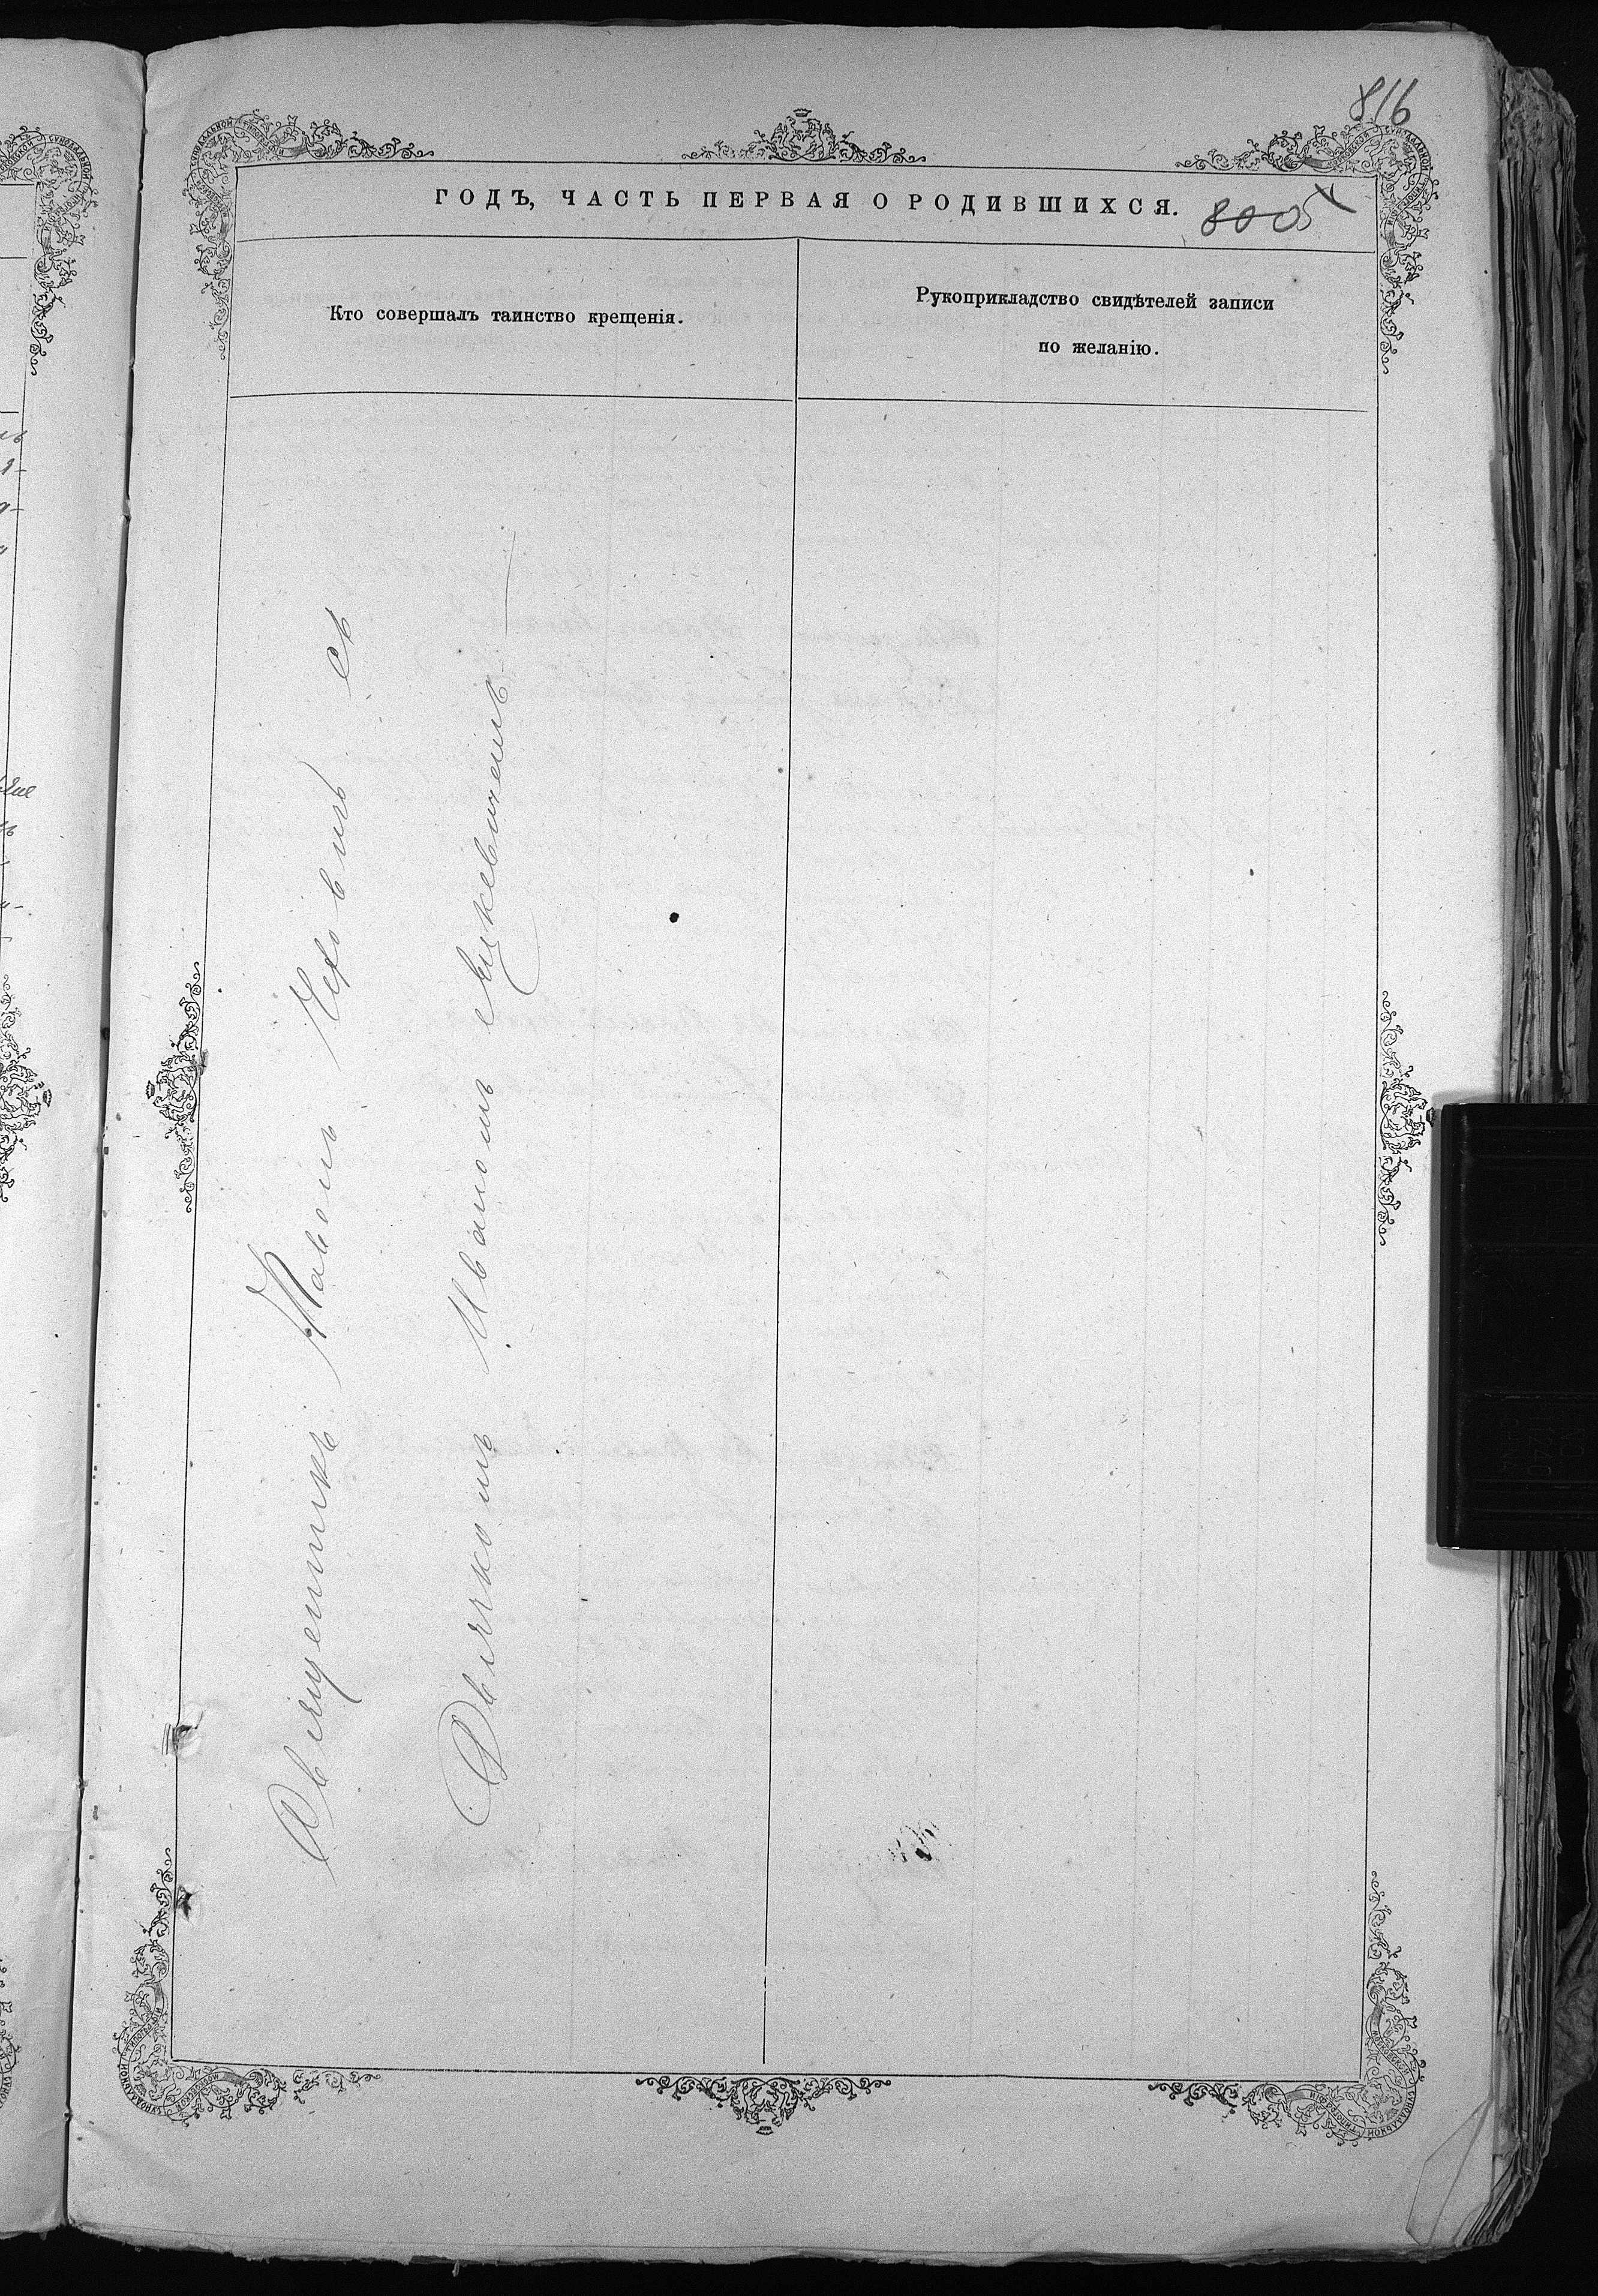 816
ГОДЪ, ЧАСТЬ ПЕРВАЯ О РОДИВШИХСЯ.
8005
Кто совершалъ таинство крещенія.
Рукоприкладство свидѣтелей записи
по желанію.
Священникъ Павелъ съ
Дьячкомъ Иваномъ Яцкевичемъ